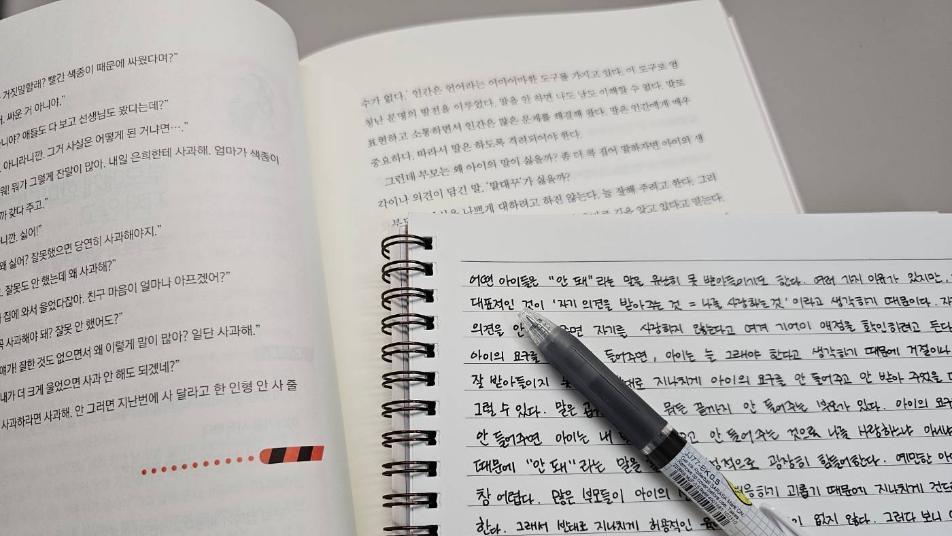 거짓말할래? 빨간 색종이 때문에 싸웠다며?”
싸운 거 아니야.”
아니야? 애들도 다 보고 선생님도 봤다는데?”
아니라니깐. 그거 사실은 어떻게 된 거냐면….”
뭐가 그렇게 잔말이 많아. 내일 은희한테 사과해. 엄마가 색종이
갖다 주고.”
싫어!”
왜 싫어? 잘못했으면 당연히 사과해야지.”
잘못도 안 했는데 왜 사과해?”
집에 와서 울었다잖아. 친구 마음이 얼마나 아프겠어?”
사과해야 돼? 잘못 안 했어도?”
얘가! 잘한 것도 없으면서 왜 이렇게 말이 많아? 일단 사과해.”
내가 더 크게 울었으면 사과 안 해도 되겠네?”
사과하라면 사과해. 안 그러면 지난번에 사 달라고 한 인형 안 사 줄
수가 없다.’ 인간은 언어라는 어마어마한 도구를 가지고 있다. 이 도구로 엄
청난 문명의 발전을 이루었다. 말을 안 하면 나도 남도 이해할 수 없다. 말로
표현하고 소통하면서 인간은 많은 문제를 해결해 왔다. 말은 인간에게 매우
중요하다. 따라서 말은 하도록 격려되어야 한다.
그런데 부모는 왜 아이의 말이 싫을까? 좀 더 콕 집어 말하자면 아이의 생
각이나 의견이 담긴 말, ‘말대꾸’가 싫을까?
나쁘게 대하려고 하진 않는다. 늘 잘해 주려고 한다. 그리
알고 있다고 믿는다.
어떤 아이들은 “안 돼”라는 말을 유난히 못 받아들이기도 한다. 여러 가지 이유가 있지만,
대표적인 것이 ‘자기 의견을 받아주는 것 = 나를 사랑하는 것’이라고 생각하기 때문이다.
의견을 안 자기를 사랑하지 않는다고 여겨 기어이 애정을 확인하려고 든다
아이의 요구를 들어주면, 아이는 늘 그래야 한다고 생각하기 때문에 거절이나
잘 받아들이지 지나치게 아이의 요구를 안 들어주고 안 받아 주었을
그럴 수 있다. 말은 뭐든 끝까지 안 들어주는 부모가 있다. 아이의
안 들어주면 아이는 내 안 들어주는 것으로 나를 사랑하느냐
때문에 “안 돼”라는 말을 굉장히 힘들어한다. 예민한
창 어렵다. 많은 부모들이 아이의 괴롭기 때문에 지나치게
한다. 그래서 반대로 지나치게 허용적인 없지 않다. 그러다 보니